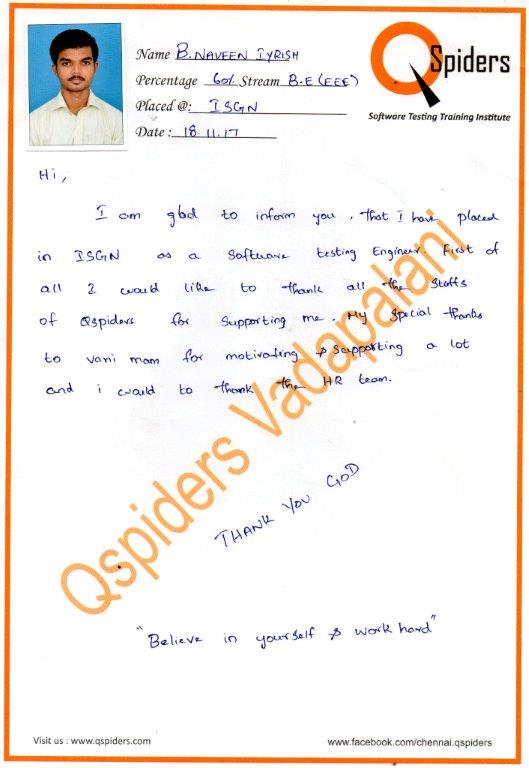 Name B. NAVEEN IYRISH
Percentage 60% Stream B.E (EEE)
Placed @: ISGN
Date : 18.11.17
QSpiders
Software Testing Training Institute
Hi,
I am glad to inform you, that I have placed
in ISGN as a software testing Engineer. First of
all I would like to thank all the staffs
of Qspiders for supporting me. My special thanks
to vani mam for motivating & supporting a lot
and i would to thank the HR team.
Qspiders Vadapalani
THANK YOU GOD
"Believe in yourself & work hard"
Visit us : www.qspiders.com
www.facebook.com/chennai.qspiders